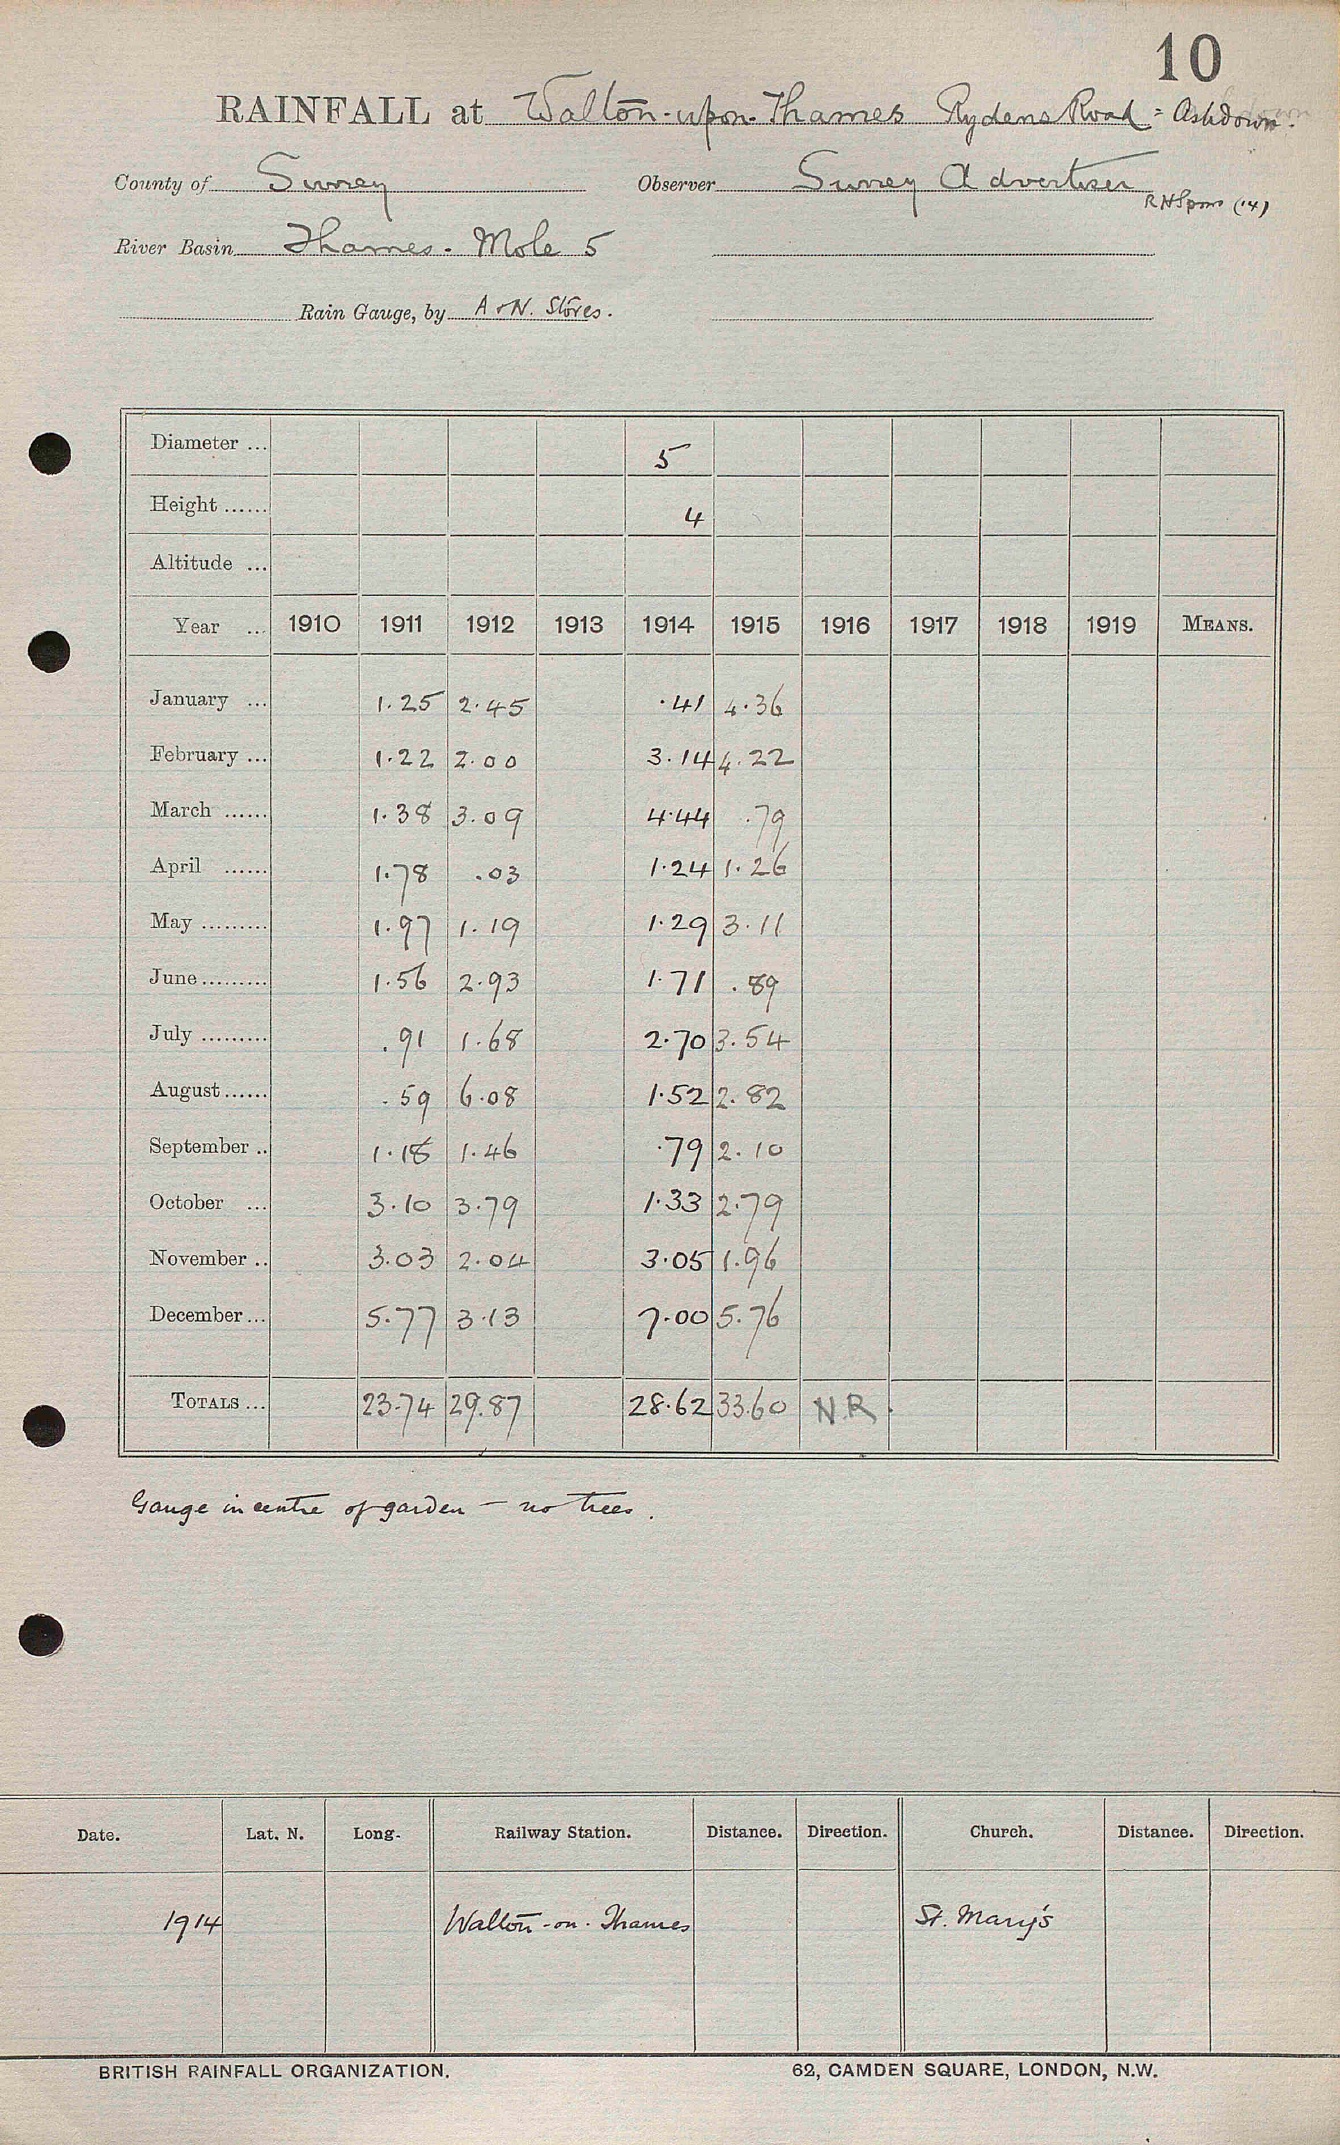 10
RAINFALL at Walton-upon-Thames Rydens Road = Ashdown.
County of Surrey Observer Surrey Advertiser
(14)
River Basin Thames - Mole 5
Rain Gauge, by A & N. Stores.
Diameter ... 5
Height ...... 4
Altitude ...
Year ... 1910 1911 1912 1913 1914 1915 1916 1917 1918 1919 MEANS.
January ... 1.25 2.45 .41 4.36
February ... 1.22 2.00 3.14 4.22
March ...... 1.38 3.09 4.44 .79
April ...... 1.78 .03 1.24 1.26
May ......... 1.97 1.19 1.29 3.11
June ......... 1.56 2.93 1.71 .89
July ......... .91 1.68 2.70 3.54
August ...... .59 6.08 1.52 2.82
September .. 1.18 1.46 .79 2.10
October ... 3.10 3.79 1.33 2.79
November .. 3.03 2.04 3.05 1.96
December ... 5.77 3.13 7.00 5.76
TOTALS ... 23.74 29.87 28.62 33.60 N.R.
Gauge in centre of garden - no trees.
Date. Lat. N. Long. Railway Station. Distance. Direction. Church. Distance. Direction.
1914 Walton-on-Thames St. Mary's
BRITISH RAINFALL ORGANIZATION. 62, CAMDEN SQUARE, LONDON, N.W.